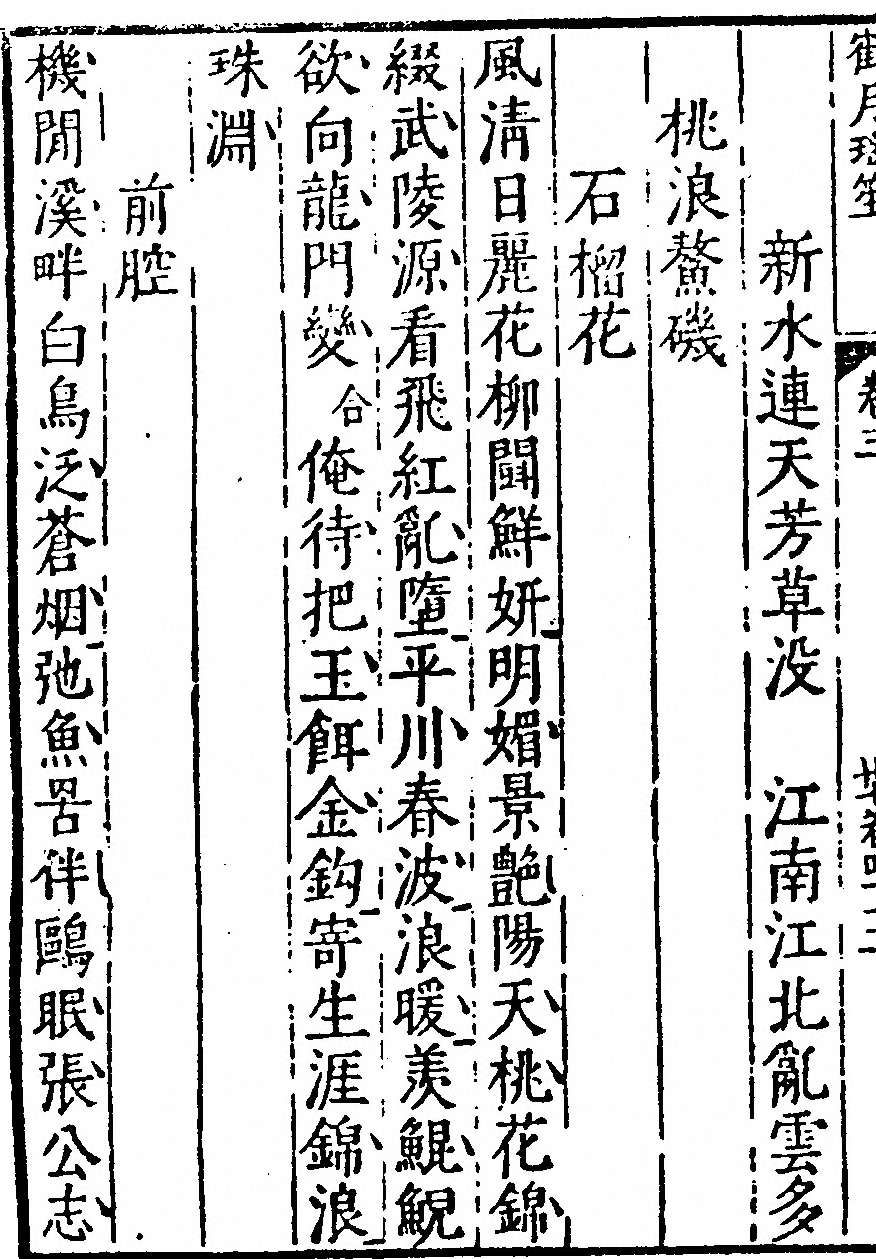 新水連天芳草没 江南江北亂雲多
桃浪鰲磯
石榴花
風清日麗花柳鬬鮮妍明媚景艷陽天桃花錦
綴武陵源看飛紅亂墮平川春波浪暖羨鯤鯢
欲向龍門變合俺待把玉餌金鈎寄生涯錦浪
珠淵
前腔
機閒溪畔白鳥泛蒼烟弛魚罟伴鷗眠張公志